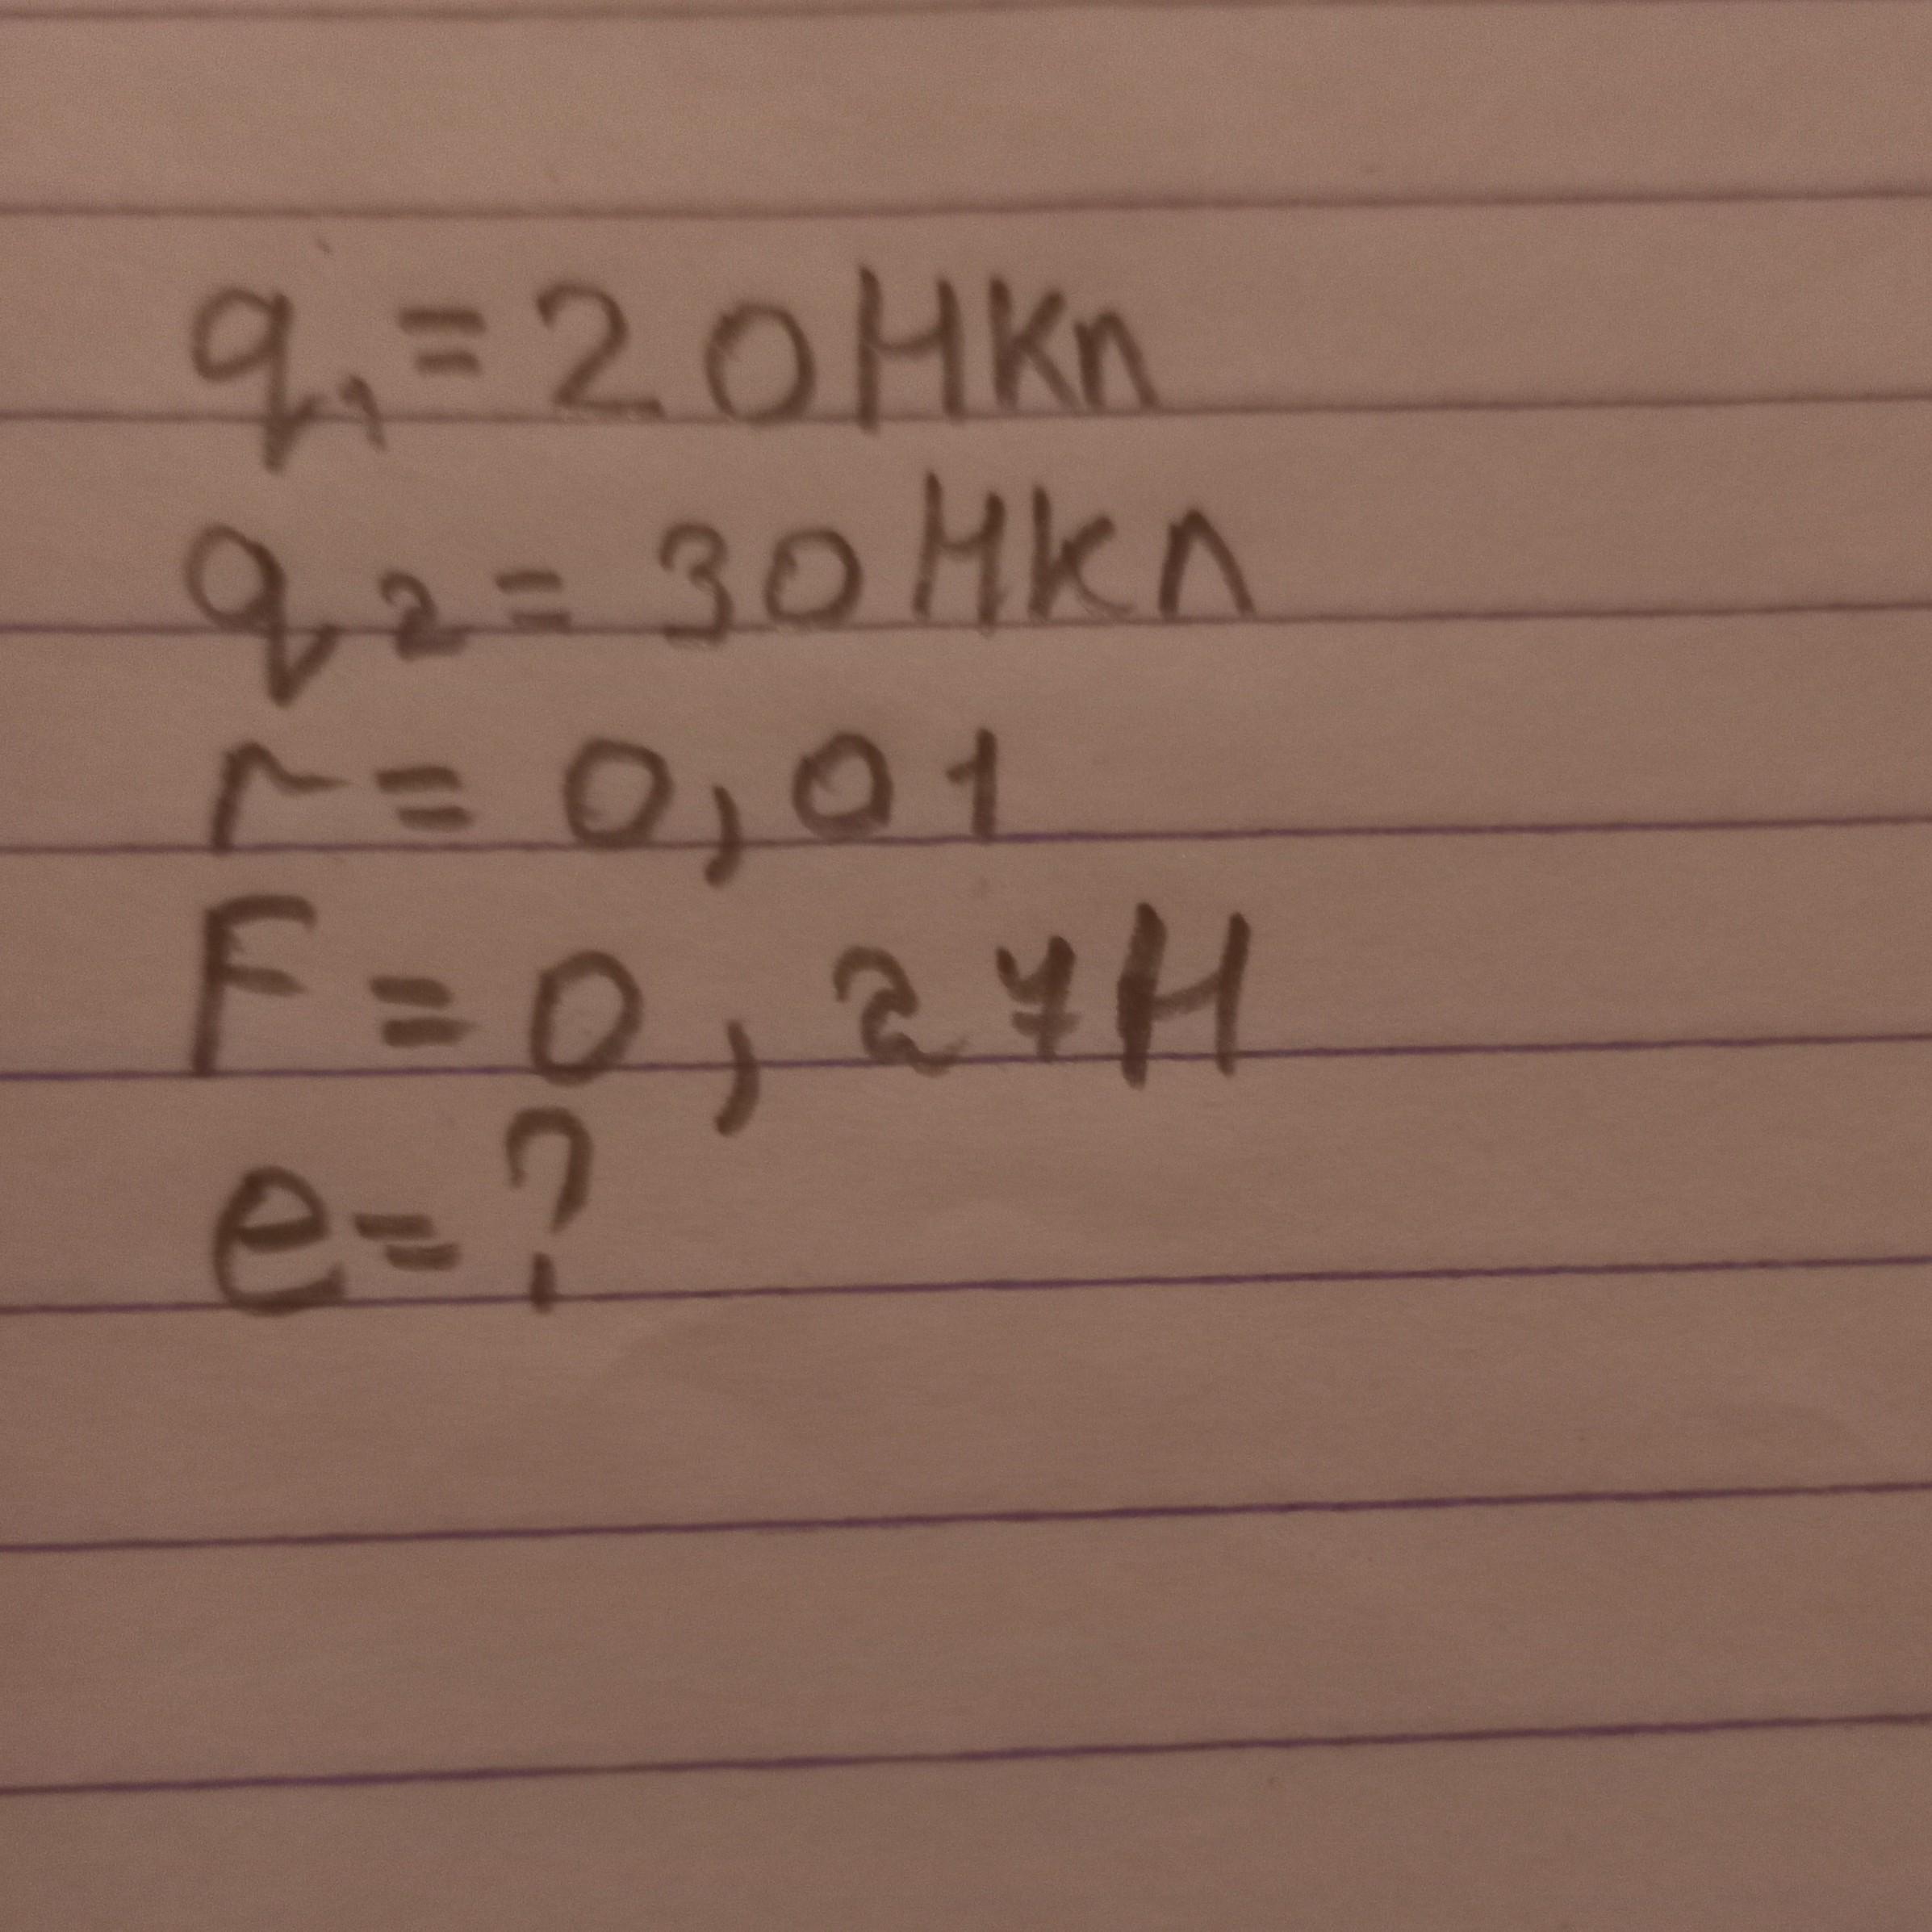 q₁ = 20 Мкл
q₂ = 30 Мкл
r = 0,01
F = 0,27Н
e = ?